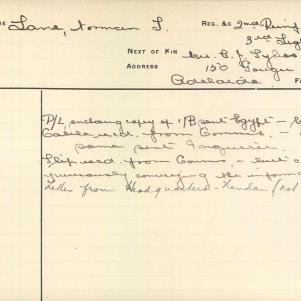 ME Lane, Norman L. REG. &C 2nd Reinf
3rd Light
NEXT OF KIN Mrs. E. J. Sykes
ADDRESS 150 Gouger
Adelaide
P/L, enclosing copy of 1/B sent Egypt -
Cable recd. from Comms. -
same sent Enquirer.
Slip recd. from Comms. -
previously conveying the inform
Letter from Headquarters - London (not